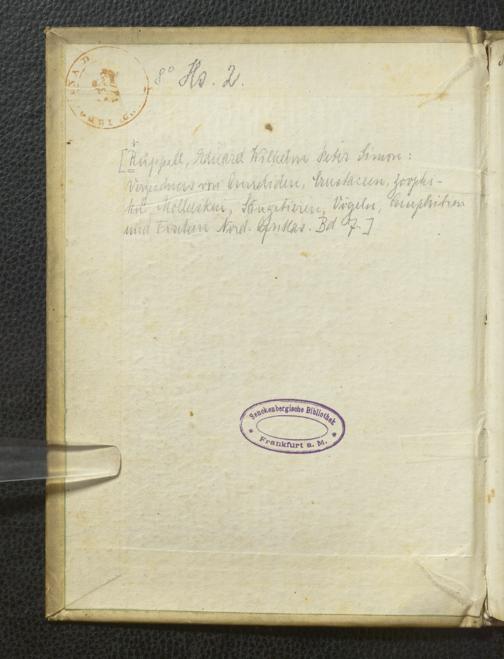 8° Hs. 2.
[Rüppell, Eduard Wilhelm Peter Simon:
Verzeichnis von Anneliden, Crustaceen, Zoophy-
ten, Mollusken, Säugetieren, Vögeln, Amphibien
und Fischen Nord-Afrikas. Bd 7.]
Senckenbergische Bibliothek
Frankfurt a. M.